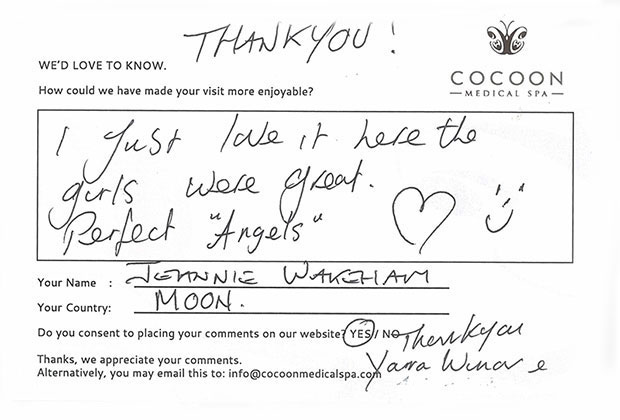 THANKYOU!
WE'D LOVE TO KNOW.
COCOON
MEDICAL SPA
How could we have made your visit more enjoyable?
I Just love it here the
girls were great.
Perfect "Angels"
Your Name : JEANNIE WAKEHAM
Your Country: MOON.
Do you consent to placing your comments on our website? YES / NO
Thankyou
Thanks, we appreciate your comments.
Yarra
Alternatively, you may email this to: info@cocoonmedicalspa.com